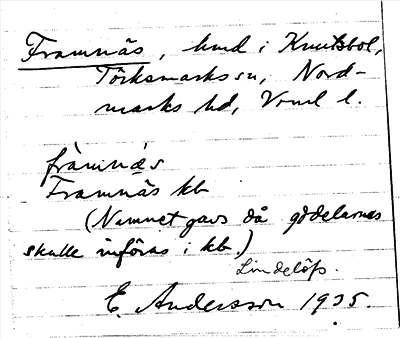 Framnäs, hmd i Knutsbol,
Töcksmarks sn, Nord-
marks hd, Vrml l.
framnäs
Framnäs kb
(Namnet gavs då gdelarnas
skulle införas i kb.)
Lindelöfs.
E. Andersson 1935.